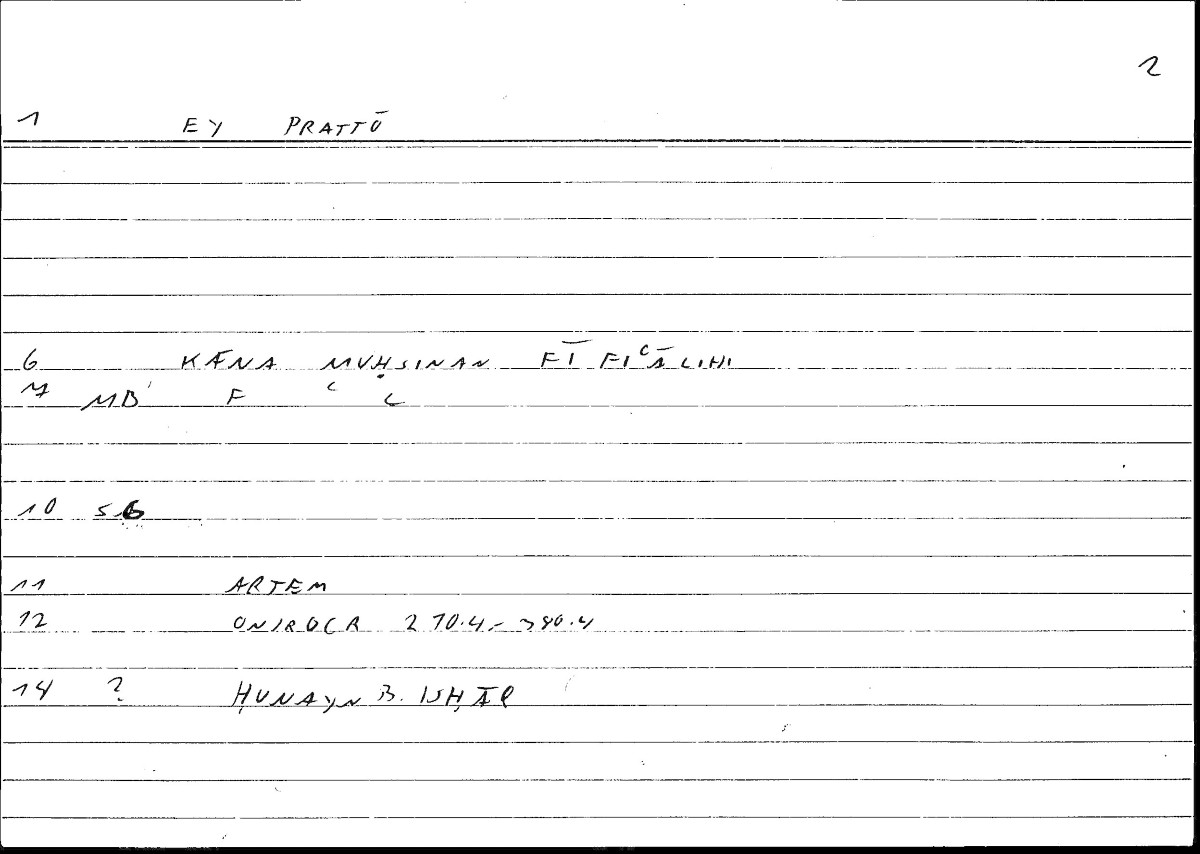 2
1 EY PRATTŌ
6 KĀNA MUḤSINAN FĪ FIʿĀLIHI
7 MB F ʿ L
10 56
11 ARTEM
12 ONIROCR 270.4-380.4
14 ? ḤUNAYN B. ISḤĀQ